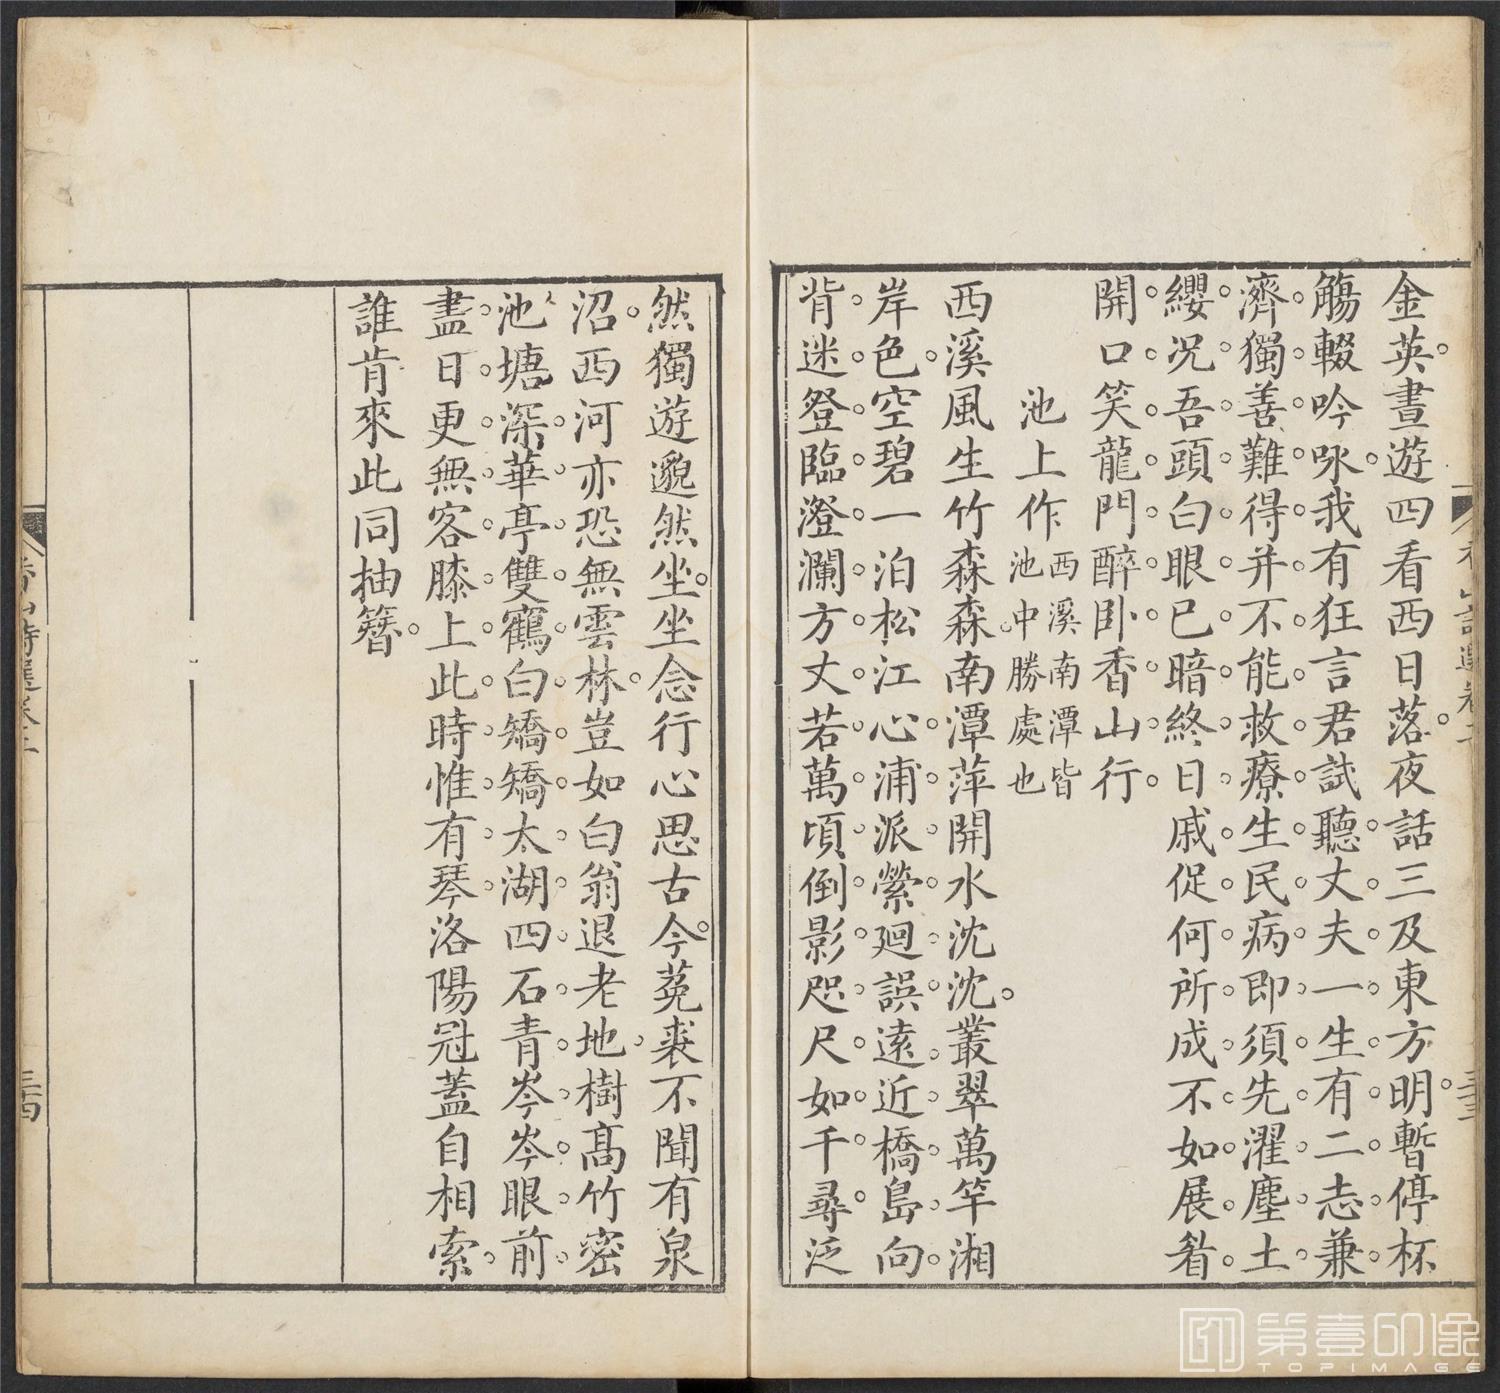 金英晝遊四看西日落夜話三及東方明暫停杯
觴輟吟咏我有狂言君試聽丈夫一生有二志兼
濟獨善難得并不能救療生民病即須先濯塵土
纓况吾頭白眼已暗終日戚促何所成不如展眉
開口笑龍門醉卧香山行
池上作
西溪南潭皆
池中勝處也
西溪風生竹森森南潭萍開水沈沈叢翠萬竿湘
岸色空碧一泊松江心浦派縈廻誤遠近橋島向
背迷登臨澄瀾方丈若萬頃倒影咫尺如千尋泛
然獨遊邈然坐坐念行心思古今菟裘不聞有泉
沼西河亦恐無雲林豈如白翁退老地樹髙竹密
池塘深華亭雙鶴白矯矯太湖四石青岑岑眼前
盡日更無客膝上此時惟有琴洛陽冠蓋自相索
誰肯來此同抽簪
三四
第壹印像
TOPIMAGE